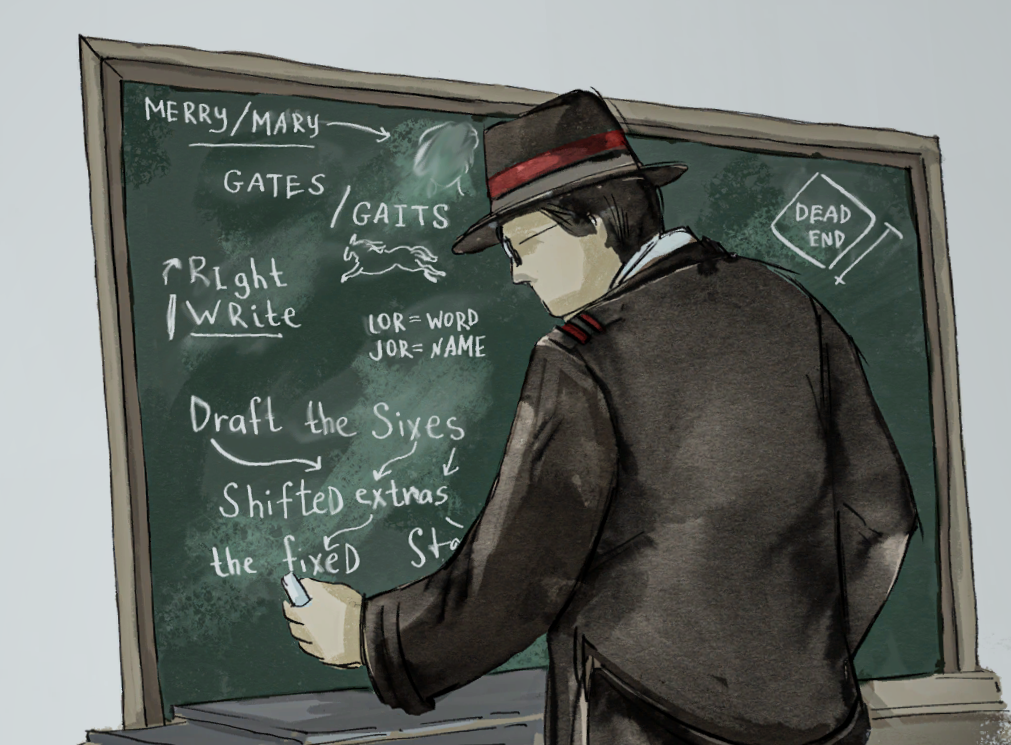 MERRY/MARY
GATES
/GAITS
RIght
WRite
LOR = WORD
JOR = NAME
Draft the Sixes
ShifteD extras
the fixeD
DEAD
END